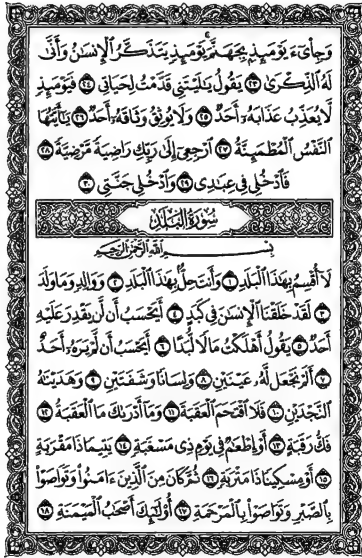 وَجِا۟يٓءَ يَوْمَئِذِۭ بِجَهَنَّمَ يَوْمَئِذٍ يَتَذَكَّرُ ٱلْإِنسَٰنُ وَأَنَّىٰ
لَهُ ٱلذِّكْرَىٰ ٢٣ يَقُولُ يَٰلَيْتَنِى قَدَّمْتُ لِحَيَاتِى ٢٤ فَيَوْمَئِذٍ
لَّا يُعَذِّبُ عَذَابَهُۥٓ أَحَدٌ ٢٥ وَلَا يُوثِقُ وَثَاقَهُۥٓ أَحَدٌ ٢٦ يَٰٓأَيَّتُهَا
ٱلنَّفْسُ ٱلْمُطْمَئِنَّةُ ٢٧ ٱرْجِعِىٓ إِلَىٰ رَبِّكِ رَاضِيَةً مَّرْضِيَّةً ٢٨
فَٱدْخُلِى فِى عِبَٰدِى ٢٩ وَٱدْخُلِى جَنَّتِى ٣٠
سُورَةُ ٱلْبَلَدِ
بِسْمِ ٱللَّهِ ٱلرَّحْمَٰنِ ٱلرَّحِيمِ
لَآ أُقْسِمُ بِهَٰذَا ٱلْبَلَدِ ١ وَأَنتَ حِلٌّۢ بِهَٰذَا ٱلْبَلَدِ ٢ وَوَالِدٍ وَمَا وَلَدَ
٣ لَقَدْ خَلَقْنَا ٱلْإِنسَٰنَ فِى كَبَدٍ ٤ أَيَحْسَبُ أَن لَّن يَقْدِرَ عَلَيْهِ
أَحَدٌ ٥ يَقُولُ أَهْلَكْتُ مَالًا لُّبَدًا ٦ أَيَحْسَبُ أَن لَّمْ يَرَهُۥٓ أَحَدٌ
٧ أَلَمْ نَجْعَل لَّهُۥ عَيْنَيْنِ ٨ وَلِسَانًا وَشَفَتَيْنِ ٩ وَهَدَيْنَٰهُ
ٱلنَّجْدَيْنِ ١٠ فَلَا ٱقْتَحَمَ ٱلْعَقَبَةَ ١١ وَمَآ أَدْرَىٰكَ مَا ٱلْعَقَبَةُ ١٢
فَكُّ رَقَبَةٍ ١٣ أَوْ إِطْعَٰمٌ فِى يَوْمٍ ذِى مَسْغَبَةٍ ١٤ يَتِيمًا ذَا مَقْرَبَةٍ
١٥ أَوْ مِسْكِينًا ذَا مَتْرَبَةٍ ١٦ ثُمَّ كَانَ مِنَ ٱلَّذِينَ ءَامَنُوا۟ وَتَوَاصَوْا۟
بِٱلصَّبْرِ وَتَوَاصَوْا۟ بِٱلْمَرْحَمَةِ ١٧ أُو۟لَٰٓئِكَ أَصْحَٰبُ ٱلْمَيْمَنَةِ ١٨